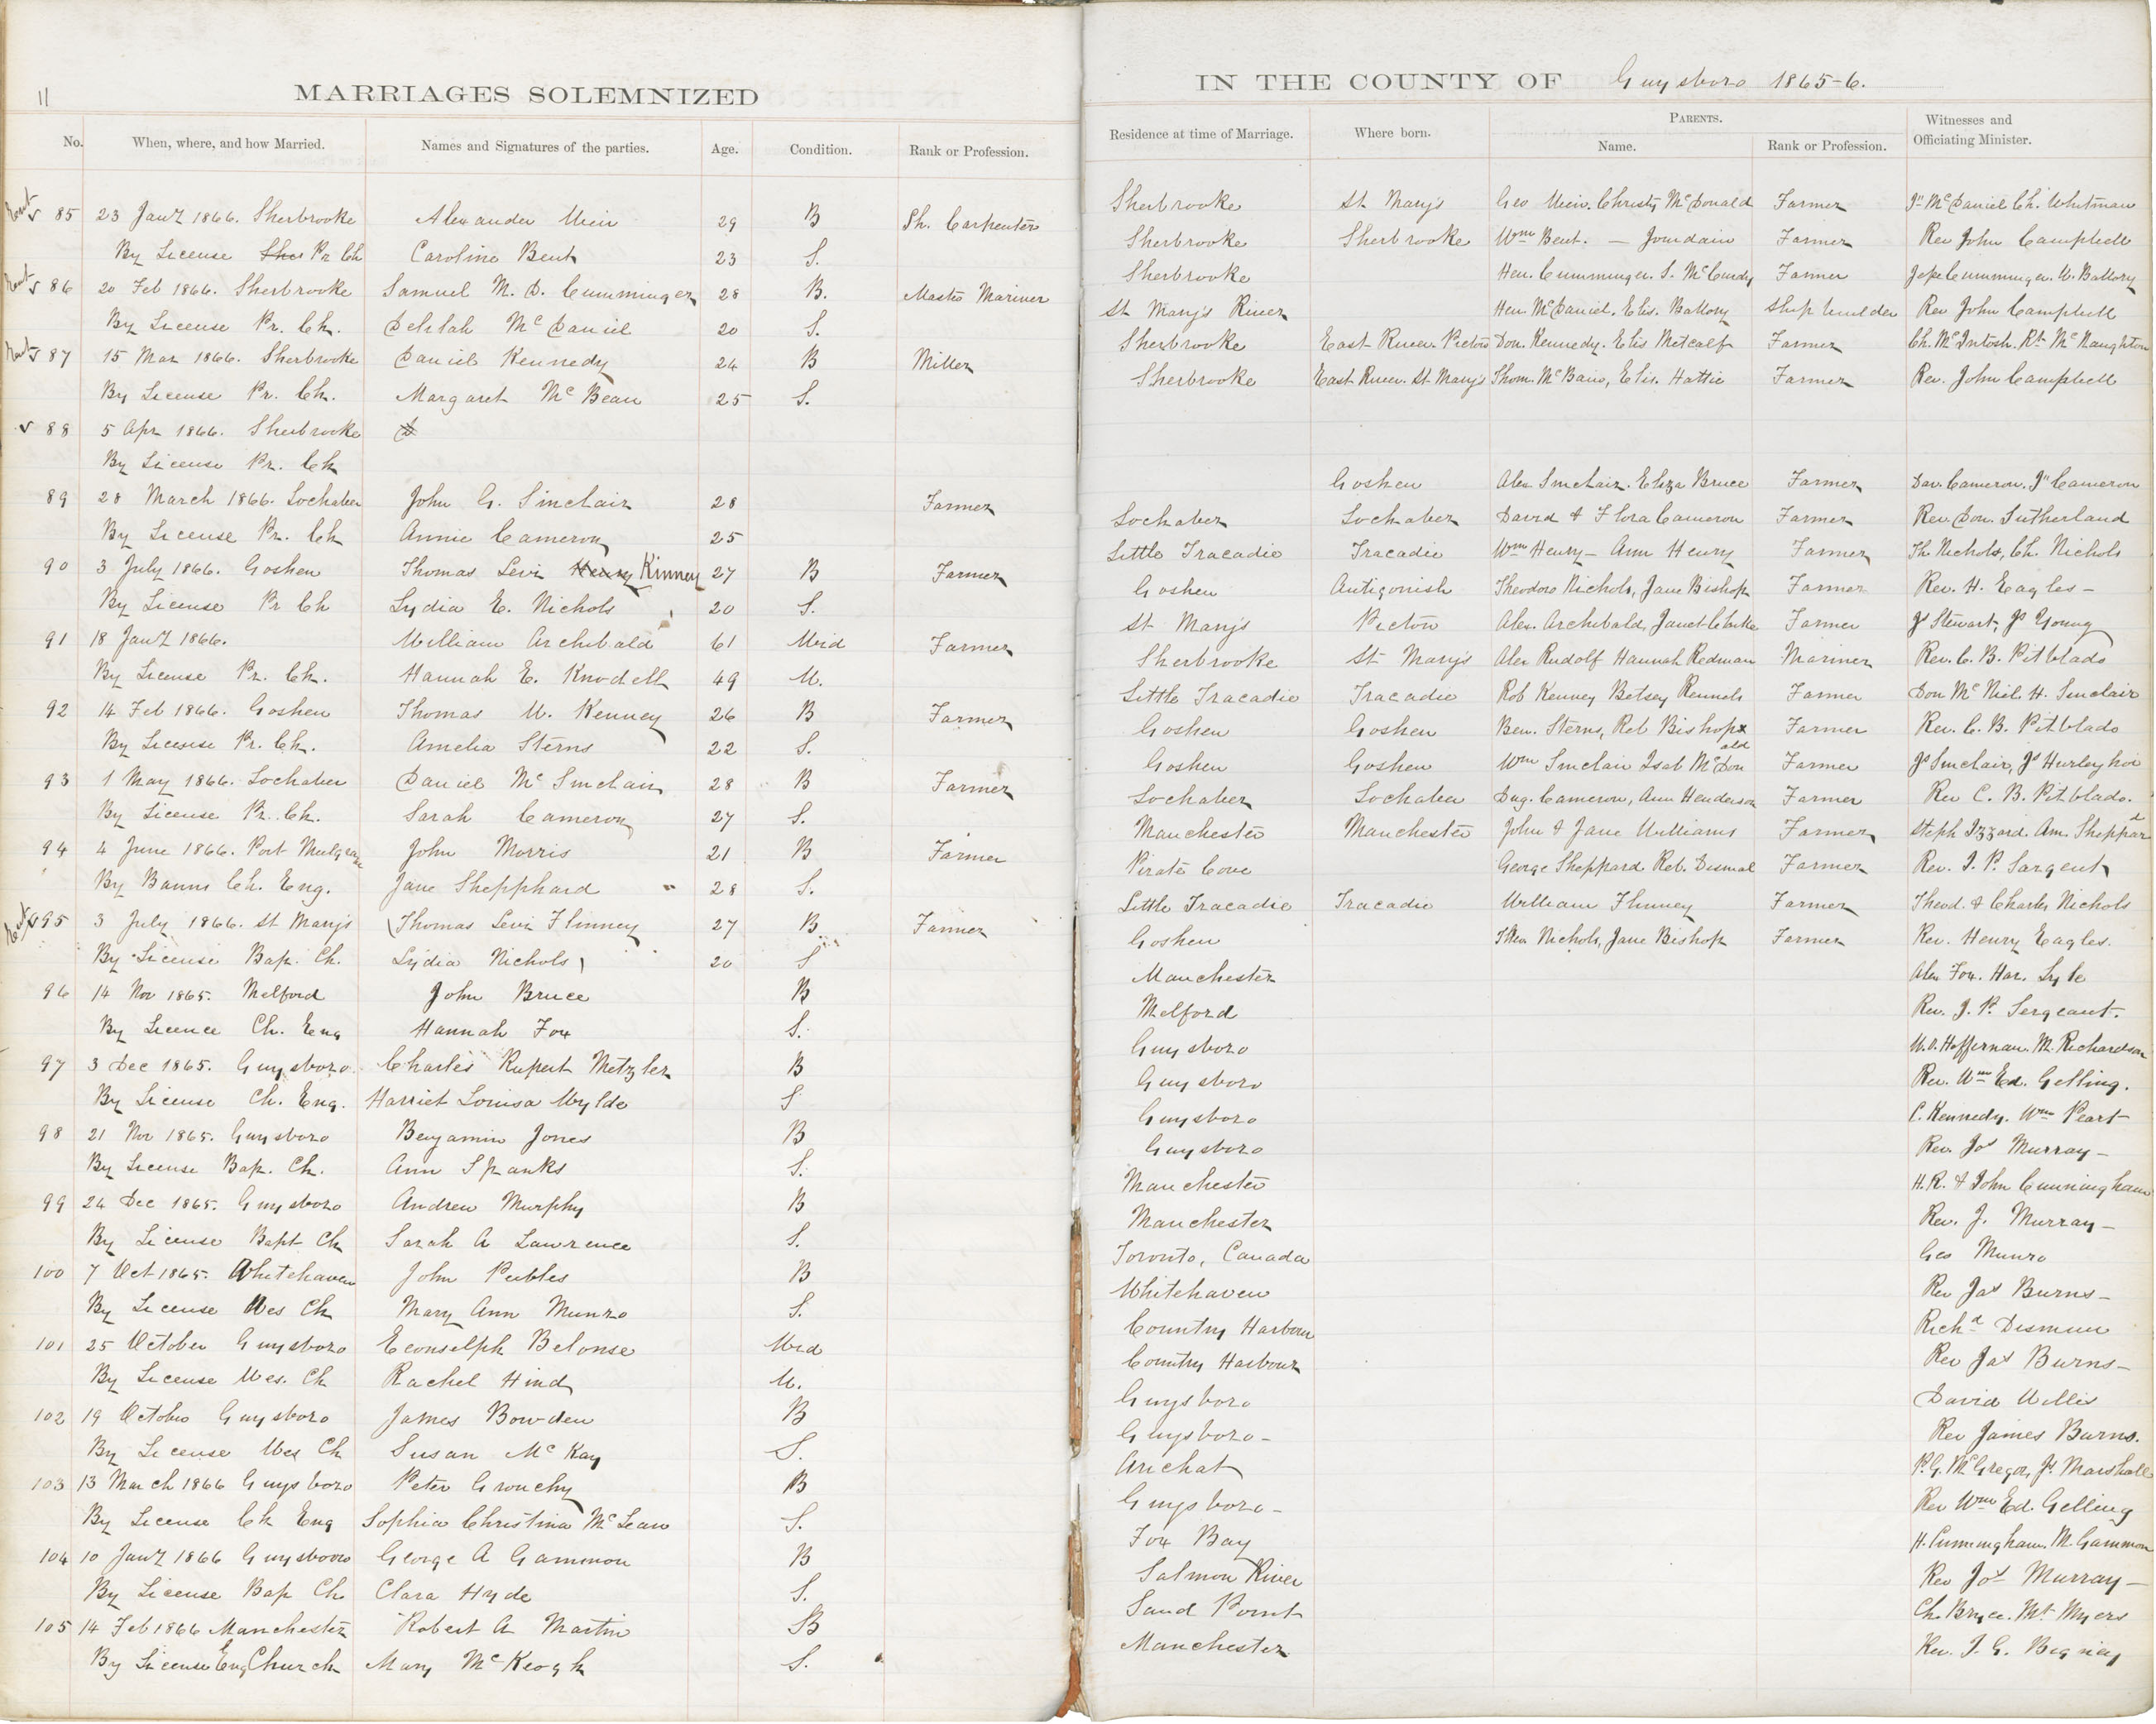 11
MARRIAGES SOLEMNIZED
IN THE COUNTY OF Guysboro 1865-6.
No. When, where, and how Married. Names and Signatures of the parties. Age. Condition. Rank or Profession. Residence at time of Marriage. Where born. PARENTS. Name. Rank or Profession. Witnesses and Officiating Minister.
85 23 Jany 1866. Sherbrooke Alexander Muir 29 B Sh. Carpenter Sherbrooke St Mary's Geo Muir. Christy McDonald Farmer Jn McDaniel Ch. Whitman
By License Pr Ch Caroline Bent 23 S. Sherbrooke Sherbrooke Wm Bent. — Jourdain Farmer Rev John Campbell
86 20 Feb 1866. Sherbrooke Samuel M. D. Cumminger 28 B. Master Mariner Sherbrooke Hen. Cumminger. S. McCurdy Farmer Jespe Cumminger. W. Ballory
By License Pr. Ch. Delilah McDaniel 20 S. St Mary's River Hen. McDaniel. Elis. Ballory Ship builder Rev John Campbell
87 15 Mar 1866. Sherbrooke Daniel Kennedy 24 B Miller Sherbrooke East River. Pictou Don. Kennedy. Elis Metcalf Farmer Ch. McIntosh. Rt McNaughton
By License Pr. Ch. Margaret McBean 25 S. Sherbrooke East River. St Mary's Thom. McBain, Elis. Hattie Farmer Rev. John Campbell
88 5 Apr 1866. Sherbrooke
By License Pr. Ch
89 28 March 1866. Lochaber John G. Sinclair 28 Farmer Goshen Alex Sinclair. Eliza Bruce Farmer Dav. Cameron. Jn Cameron
By License Pr. Ch Annie Cameron 25 Lochaber Lochaber David & Flora Cameron Farmer Rev. Don. Sutherland
90 3 July 1866. Goshen Thomas Levi Henry Kinney 27 B Farmer Little Tracadie Tracadie Wm Henry — Ann Henry Farmer Th. Nichols, Ch. Nichols
By License Pr Ch Lydia E. Nichols 20 S. Goshen Antigonish Theodore Nichols, Jane Bishop Farmer Rev. H. Eagles —
91 18 Jany 1866. William Archibald 61 Wid Farmer St Mary's Pictou Alex. Archibald, Janet Farmer Js Stewart, Js Young
By License Pr. Ch. Hannah E. Knodell 49 W. Sherbrooke St Mary's Alex Rudolf Hannah Redman Mariner Rev. C. B. Pitblado
92 14 Feb 1866. Goshen Thomas W. Kenney 26 B Farmer Little Tracadie Tracadie Rob Kenney Betsey Farmer Don McNiel. H. Sinclair
By License Pr. Ch. Amelia Sterns 22 S. Goshen Goshen Ben. Sterns, Reb Bishop Farmer Rev. C. B. Pitblado
93 1 May 1866. Lochaber Daniel Mc Sinclair 28 B Farmer Goshen Goshen Wm Sinclair Isab McDonald Farmer Js Sinclair, Js
By License Pr. Ch. Sarah Cameron 27 S. Lochaber Lochaber Dug. Cameron, Ann Henderson Farmer Rev C. B. Pitblado.
94 4 June 1866. Port Mulgrave John Morris 21 B Farmer Manchester Manchester John & Jane Williams Farmer Steph Izzard. Am. Sheppard
By Banns Ch. Eng. Jane Shepphard 28 S. Pirate Cove George Sheppard. Reb. Dismal Farmer Rev. J. P. Sargent
95 3 July 1866. St Mary's Thomas Levi Flinney 27 B. Farmer Little Tracadie Tracadie William Flinney Farmer Theod. & Charles Nichols
By License Bap. Ch. Lydia Nichols 20 S Goshen Theo Nichols, Jane Bishop Farmer Rev. Henry Eagles.
96 14 Nov 1865. Melford John Bruce B Manchester Alex Fox. Har. Lyle
By Licence Ch. Eng Hannah Fox S. Melford Rev. J. P. Sergeant.
97 3 Dec 1865. Guysboro. Charles Rupert Metzler B Guysboro W. O. Heffernan. M. Richardson
By License Ch. Eng. Harriet Louisa Wylde S Guysboro Rev. Wm Ed. Gelling.
98 21 Nov 1865. Guysboro Benjamin Jones B Guysboro C. Kennedy. Wm Peart
By License Bap. Ch. Ann Spanks S. Guysboro Rev Jos Murray —
99 24 Dec 1865. Guysboro Andrew Murphy B Manchester H. R. & John Cunningham
By License Bapt Ch Sarah A Lawrence S. Manchester Rev. J. Murray —
100 7 Oct 1865. Whitehaven John Peebles B Toronto, Canada Geo Munro
By License Wes Ch Mary Ann Munro S. Whitehaven Rev Jas Burns —
101 25 October Guysboro Econselph Belonse Wid Country Harbour Richd Dismun
By License Wes. Ch Rachel Hind W. Country Harbour Rev Jas Burns —
102 19 October Guysboro James Bowden B Guysboro David Willis
By License Wes Ch Susan McKay S. Guysboro — Rev James Burns.
103 13 March 1866 Guysboro Peter Grouchy B Arichat P. G. McGregor, Js Marshall
By License Ch Eng Sophia Christina McLean S. Guysboro — Rev Wm Ed. Gelling
104 10 Jany 1866 Guysboro George A Gammon B Fox Bay H. Cunningham. M. Gammon
By License Bap Ch Clara Hyde S. Salmon River Rev Jos Murray —
105 14 Feb 1866 Manchester Robert A Martin B Sand Point Ch. Bryce. Mt Myers
By License Eng Church Mary McKeogh S. Manchester Rev. J. G.